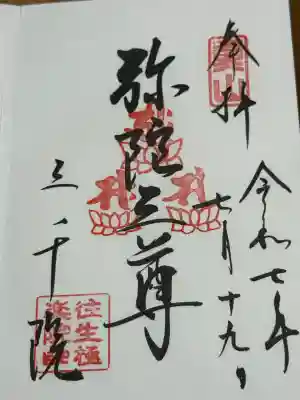 奉拝
令和七年
七月十九日
弥陀三尊
三千院
往生極
楽院印